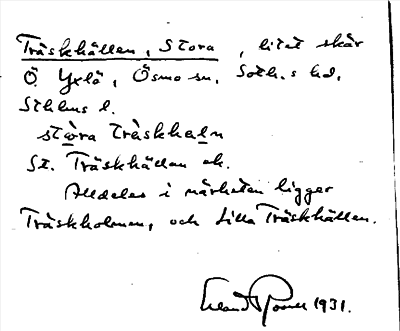 Träskhällan, Stora, litet skär
Ö. Yxlö, Ösmo sn, Soth.s hd,
Sthlms l.
stòra træ̀skhaln
St. Träskhällan ek.
Alldeles i närheten ligger
Träskholmen, och Lilla Träskhällan.
1931.